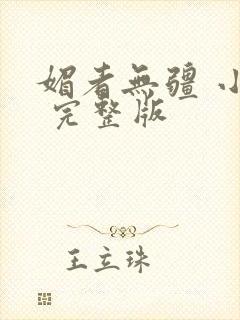 媚者無疆 小
完整版
王立珠